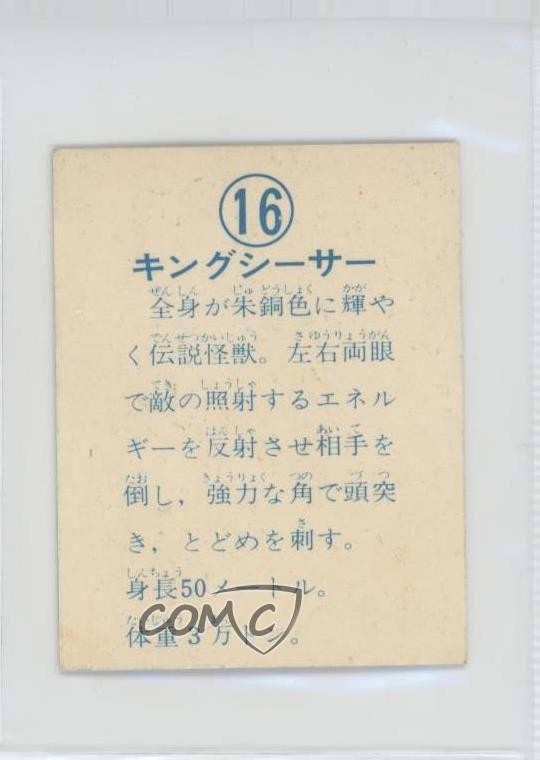 16
キングシーサー
全身が朱銅色に輝や
く伝説怪獣。左右両眼
で敵の照射するエネル
ギーを反射させ相手を
倒し，強力な角で頭突
き，とどめを刺す。
身長50メートル。
体重3万トン。
COMC